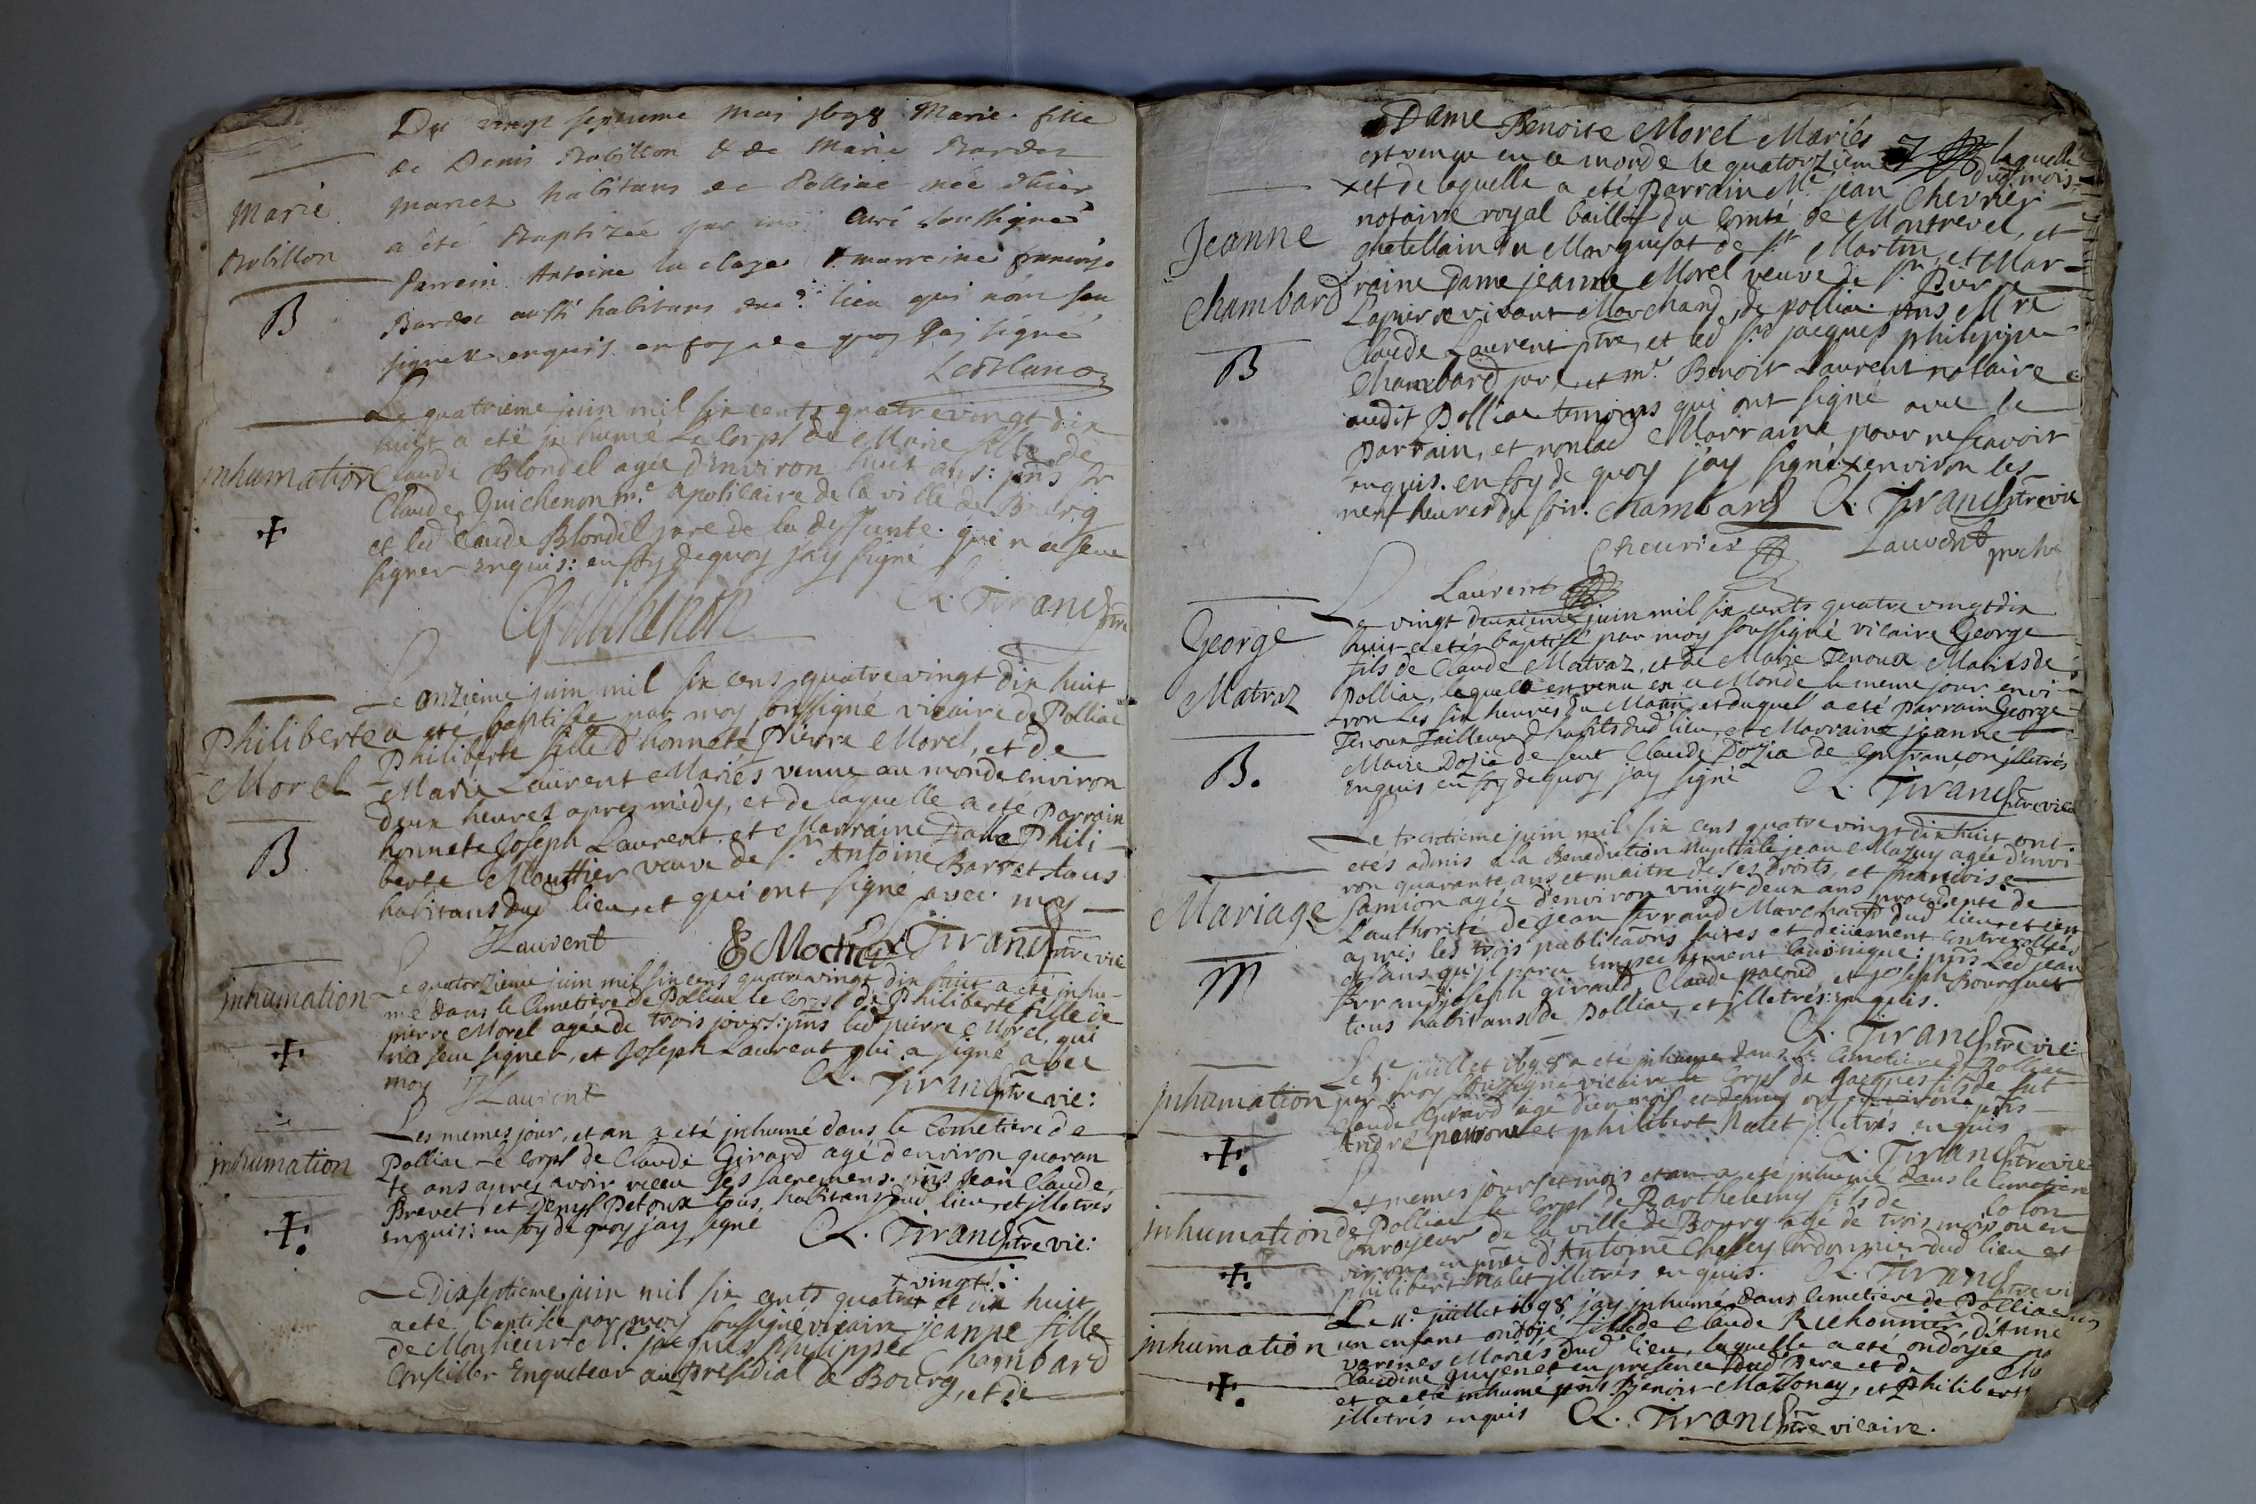 Du vingt septieme Mai 1698 Marie fille
de Denis Robillon & de Marie Bardet
mariez habitans de Polliac née d'hier
Marie
a été Baptizée par moi Curé soussigné
Robillon
Parrein Antoine la marreine françoise
B
Bardet aussi habitans dud. lieu qui n'ont sceu
signer enquis en foy de quoy j'ai signé
LeBlanc
Le quatrieme juin mil six cents quatre vingt dix
huit a eté jnhumé Le Corps de Marie fille de
jnhumation
Claude Blondel agée d'environ huit ans: pns Sr
Claude Guichenon me. apoticaire de la ville de Bourg
et led Claude Blondel pere de la deffunte. qui n'a sceu
signer enquis: en foy de quoy j'ay signé
CGuichenon Cl. Tirand ptre
Le onzieme juin mil six cens quatre vingt dix huit
Philiberte
a eté baptisée par moy soussigné vicaire de Polliac
Philiberte fille d'honnete Pierre Morel, et de
Morel
Marie Laurent Mariés venue au monde environ
deux heures apres midy, et de laquelle a eté Parrain
B
honnete Joseph Laurent. et Marraine Dame Phili-
berte Mouttier veuve de Sr Antoine Barret tous
habitans dud lieu et qui ont signé avec moy
JLaurent Cl Tirand ptre vic
jnhumation
Le quatorzieme juin mil six cens quatre vingt dix huit a eté jnhu-
mé dans le Cimetiere de Polliac le Corps de Philiberte fille de
pierre Morel agée de trois jours: pns led pierre Morel, qui
n'a sceu signer, et Joseph Laurent qui a signé avec
moy JLaurent Cl. Tirand ptre vic:
Les memes jour, et an a eté jnhumé dans le Cimetiere de
jnhumation
Polliac Le Corps de Claude Girard agé d'environ quaran
te ans apres avoir receu ses sacremens. pns Jean Claude
Brevet, et Denys Detoux tous habitans dud lieu, et jlletrés
enquis: en foy de quoy jay signé Cl. Tirand ptre vic:
vingt
Le Dixseptieme juin mil six cents quatre et dix huit
a eté baptisée par moy soussigné vicaire jeanne fille
de Monsieur Me. jacques philippe Chambard
Conseiller Enqueteur au Presidial de Bourg, et de
Dame Benoite Morel Mariés laquelle
est venue en ce monde le quatorzieme dud mois
x et de laquelle a eté Parrain Me jean Chevrier
Jeanne
notaire royal bailly du Comté de Montrevel, et
Chatellain du Marquisat de St Martin, et Mar-
Chambard
raine Dame jeanne Morel veuve de Sr
vivant Marchand de polliac pns Mre
B
Claude Laurent ptre, et led Sr jacques philippe
Chambard pere et me. Benoit Laurent notaire
audit Polliac temoins qui ont signé avec le
Parrain, et non lad Marraine pour ne sçavoir
enquis. en foy de quoy j'ay signé. x environ les
neuf heures du soir. Chambard Cl. Tirand ptre vic
Chevrier Laurent
Laurent
George
Le vingt deuxieme juin mil six cents quatre vingt dix
huit a eté baptisé par moy soussigné vicaire George
fils de Claude Matraz, et de Marie Tenoux Mariés de
Matraz
Polliac, lequel est venu en ce Monde le meme jour envi-
ron les six heures du Matin, et duquel a eté parrain George
Tenoux Tailleur d'habits dud lieu, et Marraine jeanne
B.
Marie Dozia de feut Claude Dozia de jlletrés
enquis en foy de quoy jay signé Cl. Tirand ptre vic
Le trentieme juin mil six cens quatre vingt dix huit ont
etés admis a la Benediction Nuptiale jean Mazuy agée d'envi-
ron quarante ans et maitre de ses droits, et françoise
Mariage
Samion agée d'environ vingt deux ans procedente de
l'authorité de jean ferrand Marchand dud lieu et ce
apres les trois publications faites et deüement controllées
M
et sans qu'jl parut Empechement Canonique: pns led jean
ferrand joseph girard, Claude pacoud, et joseph Bourguet
tous habitans de Polliac, et jlletrés: enquis.
Cl. Tirand ptre vic
Le juillet 1698 a eté jnhumé dans le Cimetiere de Polliac
jnhumation
par moy soussigné vicaire le Corps de Jacques fils de feut
Claude Girard agé d'un mois et demy ou environ pns
André et philibert Nalet jlletrés enquis
Cl. Tirand ptre vic
Les memes jour et mois et an a eté jnhumé dans le Cimetiere
jnhumation
de Polliac le Corps de Barthelemy fils de Colon
Conroyeur de la ville de Bourg agé de trois mois, ou en
viron en pnce d'Antoine Cordonnier dud lieu et
philibert Nalet jlletrés enquis. Cl. Tirand ptre vi
Le 11e. juillet 1698 j'ay jnhumé dans Cimetiere de Polliac
jnhumation
un enfant ondoyé fille de Claude Richonnier d'Anne
varenes Mariés dud lieu, laquelle a eté ondoyée
Claudine guyenet en presence dud Pere et de
et a eté jnhumé pns Benoit et Philibert
jlletrés enquis Cl. Tirand ptre vicaire.